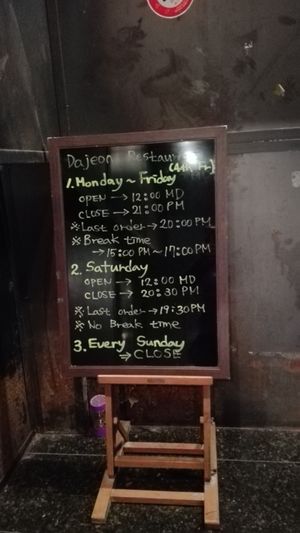 Dajeon Restaurant
1. Monday ~ Friday
OPEN → 12:00 MD
CLOSE → 21:00 PM
※ Last order → 20:00 PM
※ Break time
→ 15:00 PM ~ 17:00 PM
2. Saturday
OPEN → 12:00 MD
CLOSE → 20:30 PM
※ Last order → 19:30 PM
※ No Break time
3. Every Sunday
⇒ CLOSE